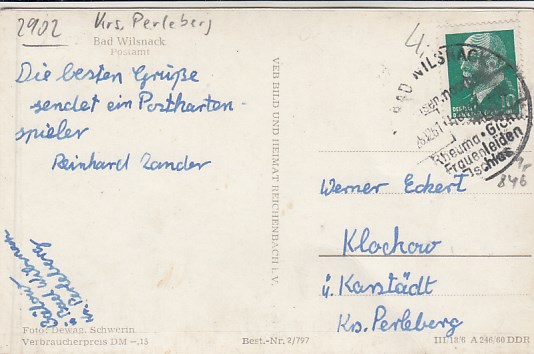 2902 Krs. Perleberg
Bad Wilsnack
Postamt
Die besten Grüße
sendet ein Postkarten-
spieler
Reinhard Zander
Bad Wilsnack
Krs. Perleberg
Foto: Dewag, Schwerin
Verbraucherpreis DM –,15
VEB BILD UND HEIMAT REICHENBACH i. V.
Best.-Nr. 2/797
BAD WILSNACK
Rheuma · Gicht
Frauenleiden
Ischias
10
846
Werner Eckert
Klockow
ü. Karstädt
Krs. Perleberg
III/18/6 A 246/60 DDR